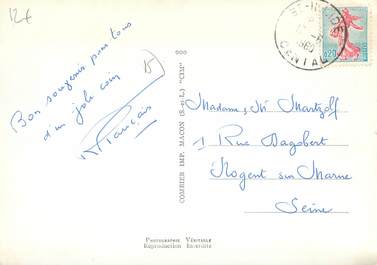 12€
Bon souvenir pour tous
d'un joli coin
15
François
COMBIER IMP. MACON (S.-et-L.) "CIM"
ST-
CANTAL
0,20
Madame, Mr Martzolf
1 Rue Dagobert
Nogent sur Marne
Seine
PHOTOGRAPHIE VÉRITABLE
Reproduction Interdite